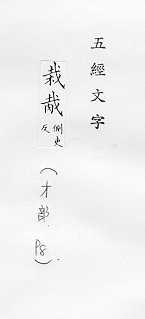 五經文字
栽哉
側吏反
(才部.
P8).